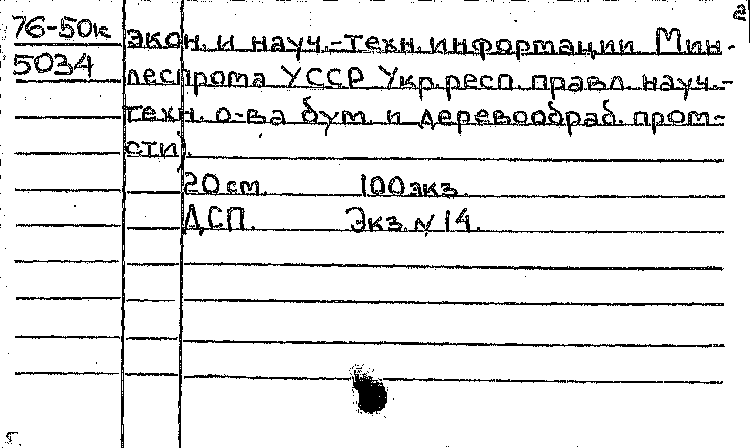 2
76-50к экон. и науч.-техн. информации Мин-
5034 леспрома УССР Укр. респ. правл. науч.-
техн. о-ва бум. и деревообраб. пром-
сти).
20 см. 100 экз.
ДСП. Экз. N 14.
г.